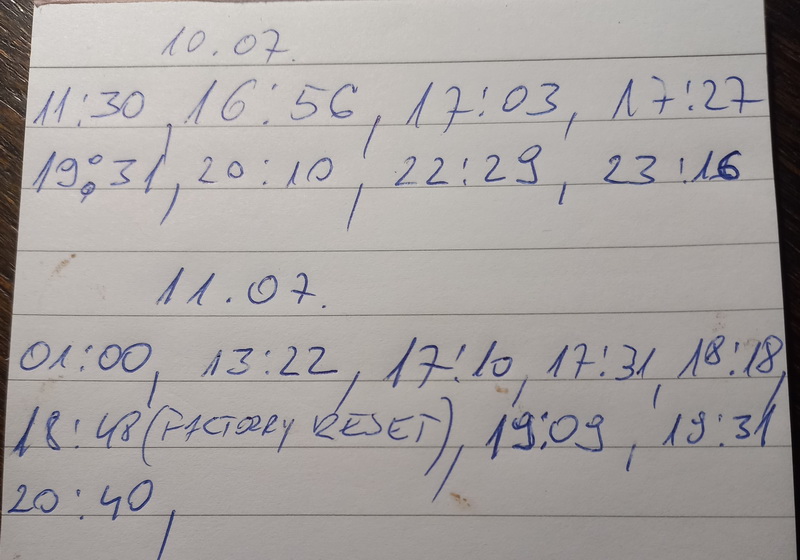 10.07.
11:30, 16:56, 17:03, 17:27
19:31, 20:10, 22:29, 23:16
11.07.
01:00, 13:22, 17:10, 17:31, 18:18,
18:48 (FACTORY RESET), 19:09, 19:31
20:40,